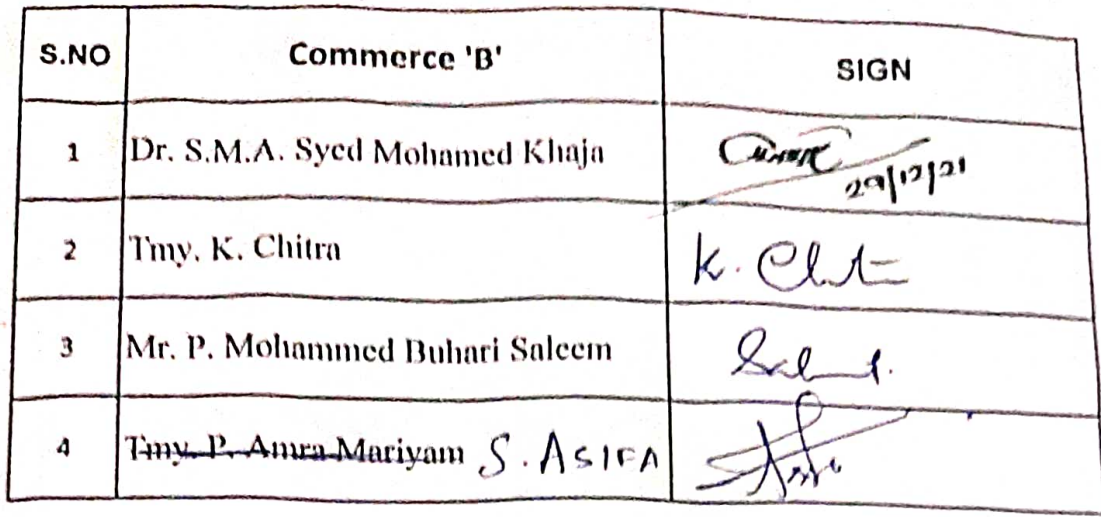 S.NO Commerce 'B' SIGN
1 Dr. S.M.A. Syed Mohamed Khaja 29/12/21
2 Tmy. K. Chitra K. Chitra
3 Mr. P. Mohammed Buhari Saleem
4 Tmy. P. Amra Mariyam S. ASIFA